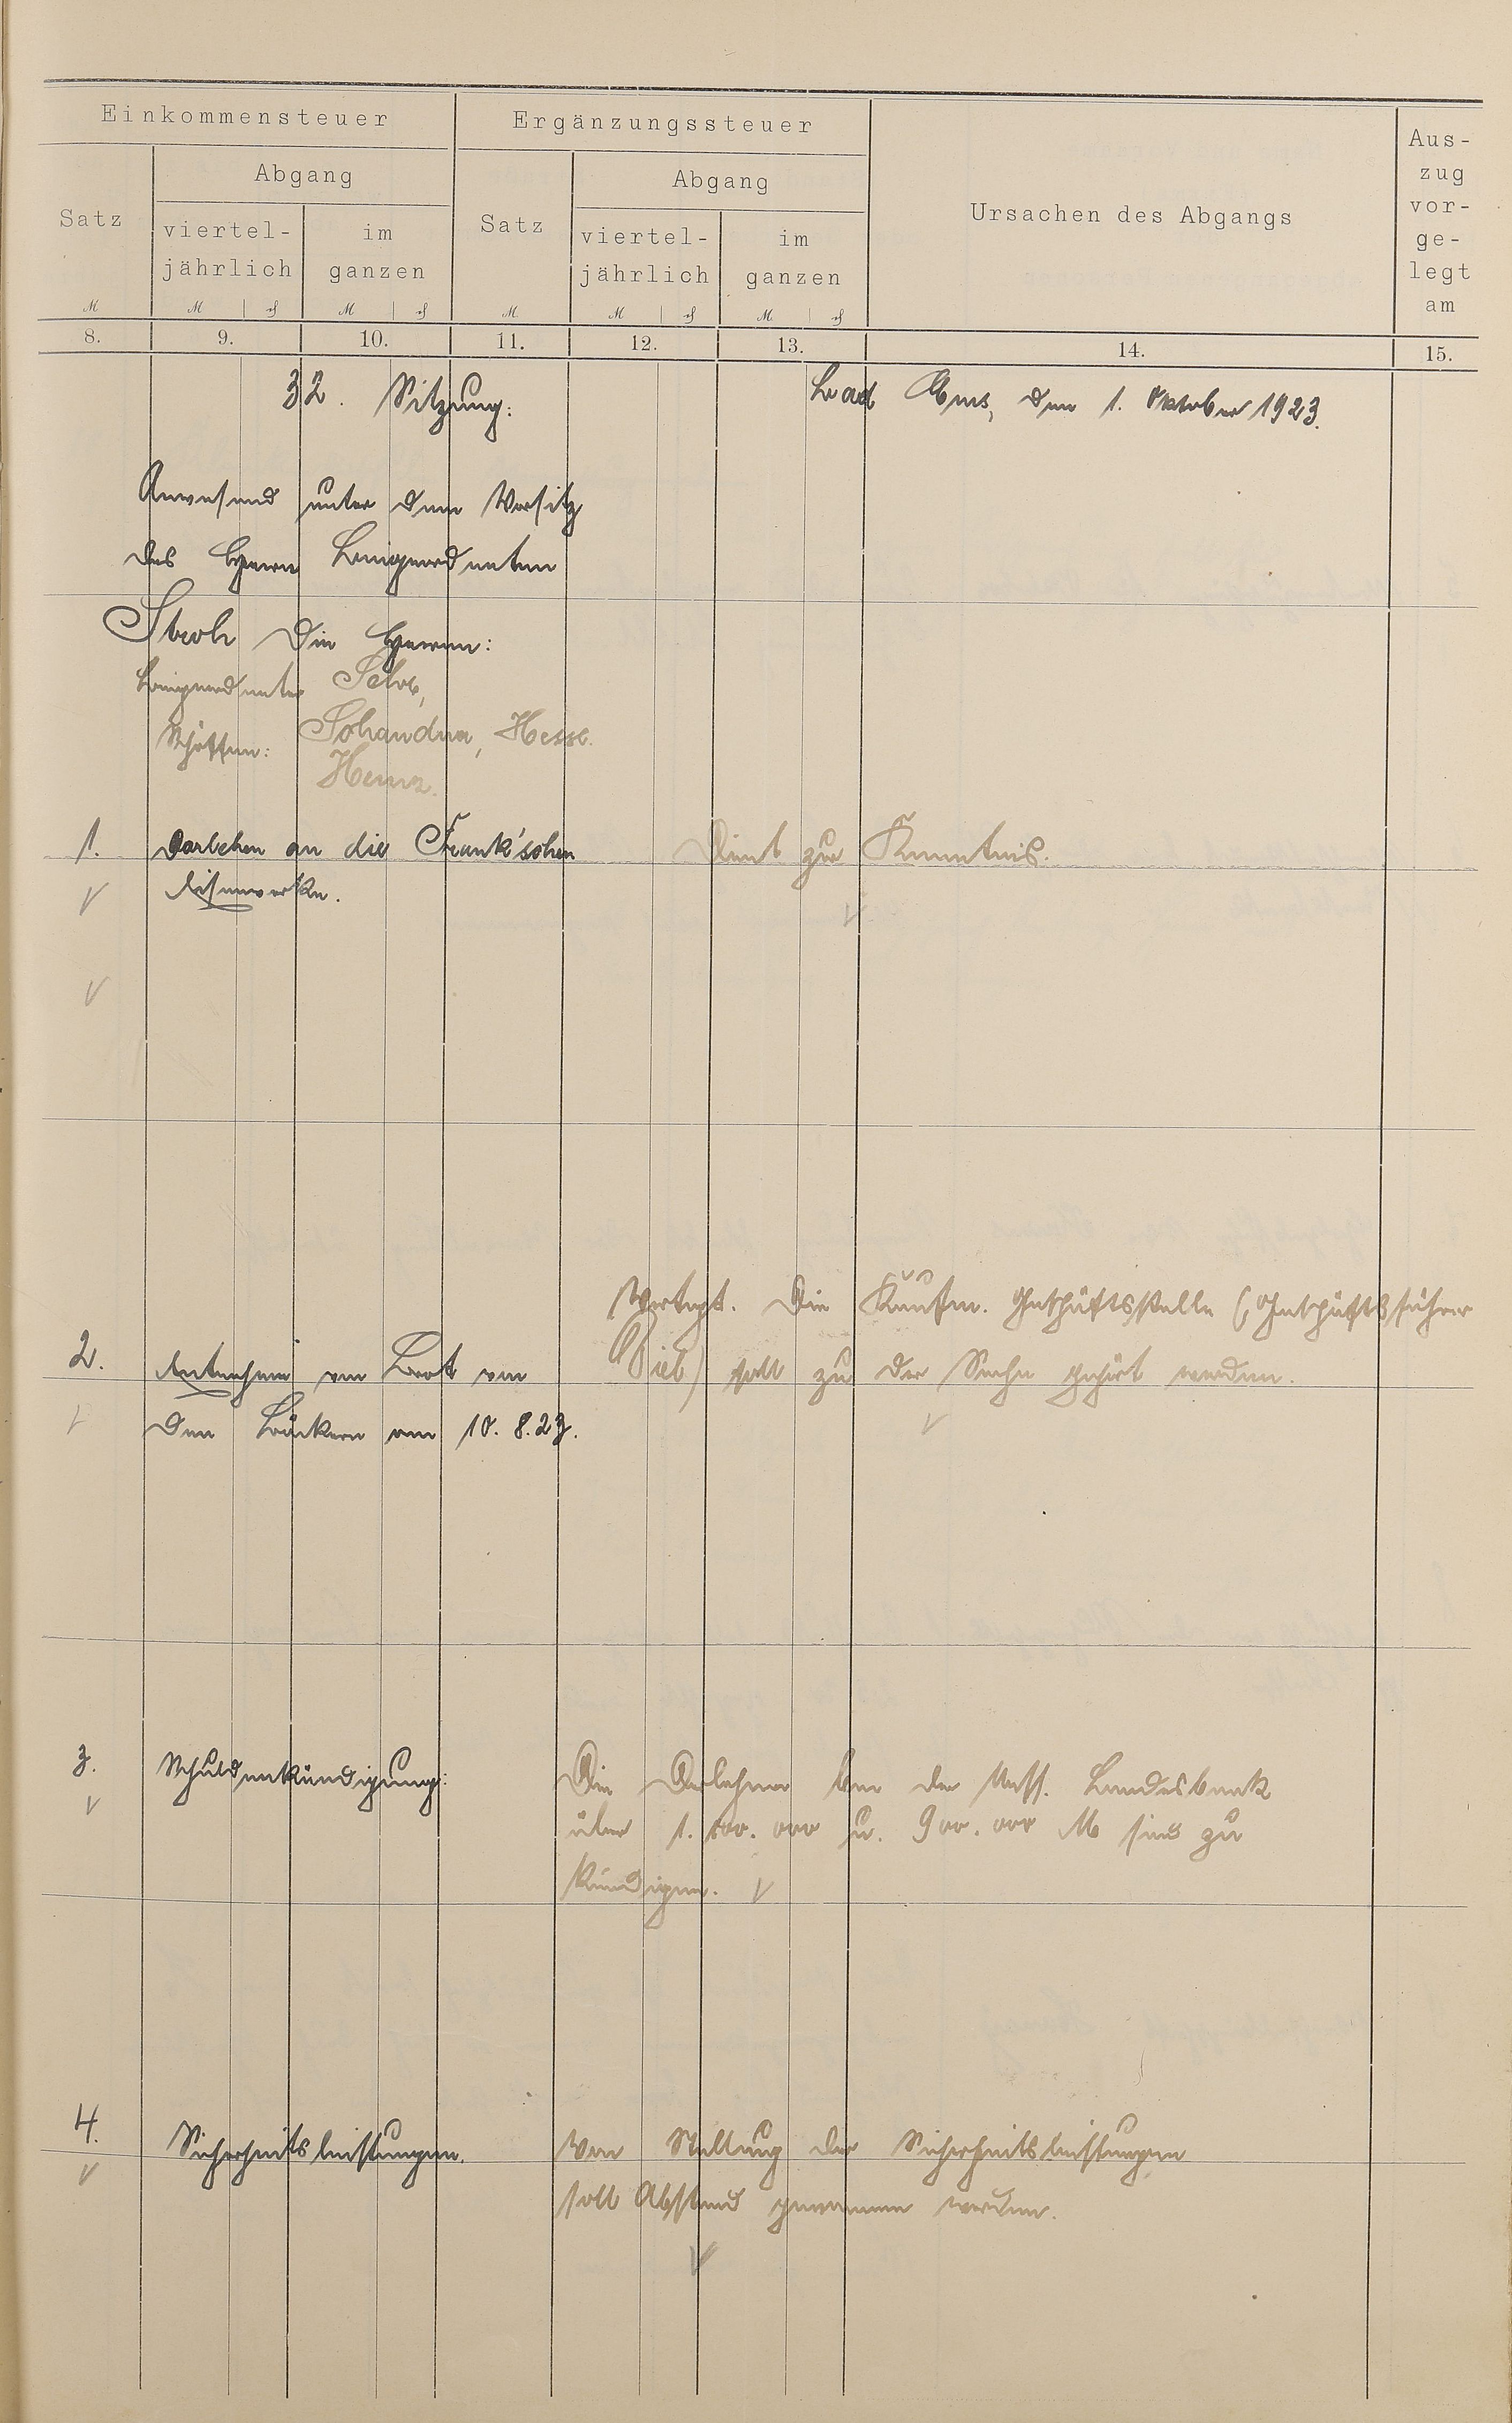 Einkommensteuer
Ergänzungssteuer
Ursachen des Abgangs
Aus-
zug
vor-
ge-
legt
am
Satz
Abgang
viertel-
jährlich
im
ganzen
Satz
Abgang
viertel-
jährlich
im
ganzen
M
M
M
M
M
M
8.
9.
10.
11.
12.
13.
14.
15.
32. Sitzung.
Bad Ems, den 1. Oktober 1923.
Anwesend unter dem Vorsitz
des Herrn Beigeordneten
Stroh die Herren:
Beigeordneter
Schöffen: Hesse.
1.
Darlehen an die Frank'schen
Eisenwerke.
Dient zur Kenntnis.
2.
Entnahme von Brot von
den Bäckern am 10. 8. 23.
Vertagt. Die Kaufm. Geschäftsstelle (Geschäftsführer
soll zu der Sache gehört werden.
3.
Schuldenkündigung:
Die Darlehen bei der Nass. Landesbank
über 1.500.000 u. 900.000 M sind zu
kündigen.
4.
Sicherheitsleistungen.
Von Stellung der Sicherheitsleistungen
soll Abstand genommen werden.